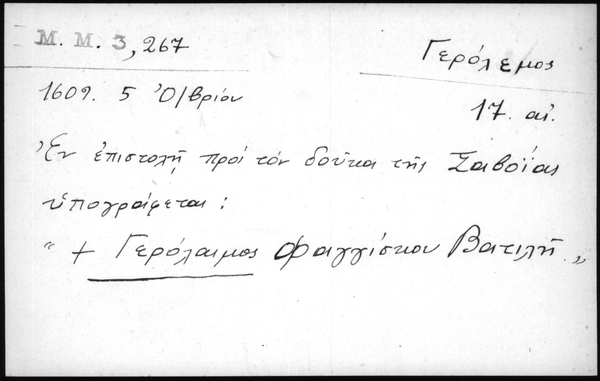 Μ. Μ. 3, 267
Γερόλεμος
1609. 5 Ὀ/βρίου
17. αἰ.
Ἐν ἐπιστολῇ πρὸς τὸν δοῦκα τῆς Σαβοΐας
ὑπογράφεται:
“ + Γερόλαιμος Φαγγίσκου Βατιλῆ „